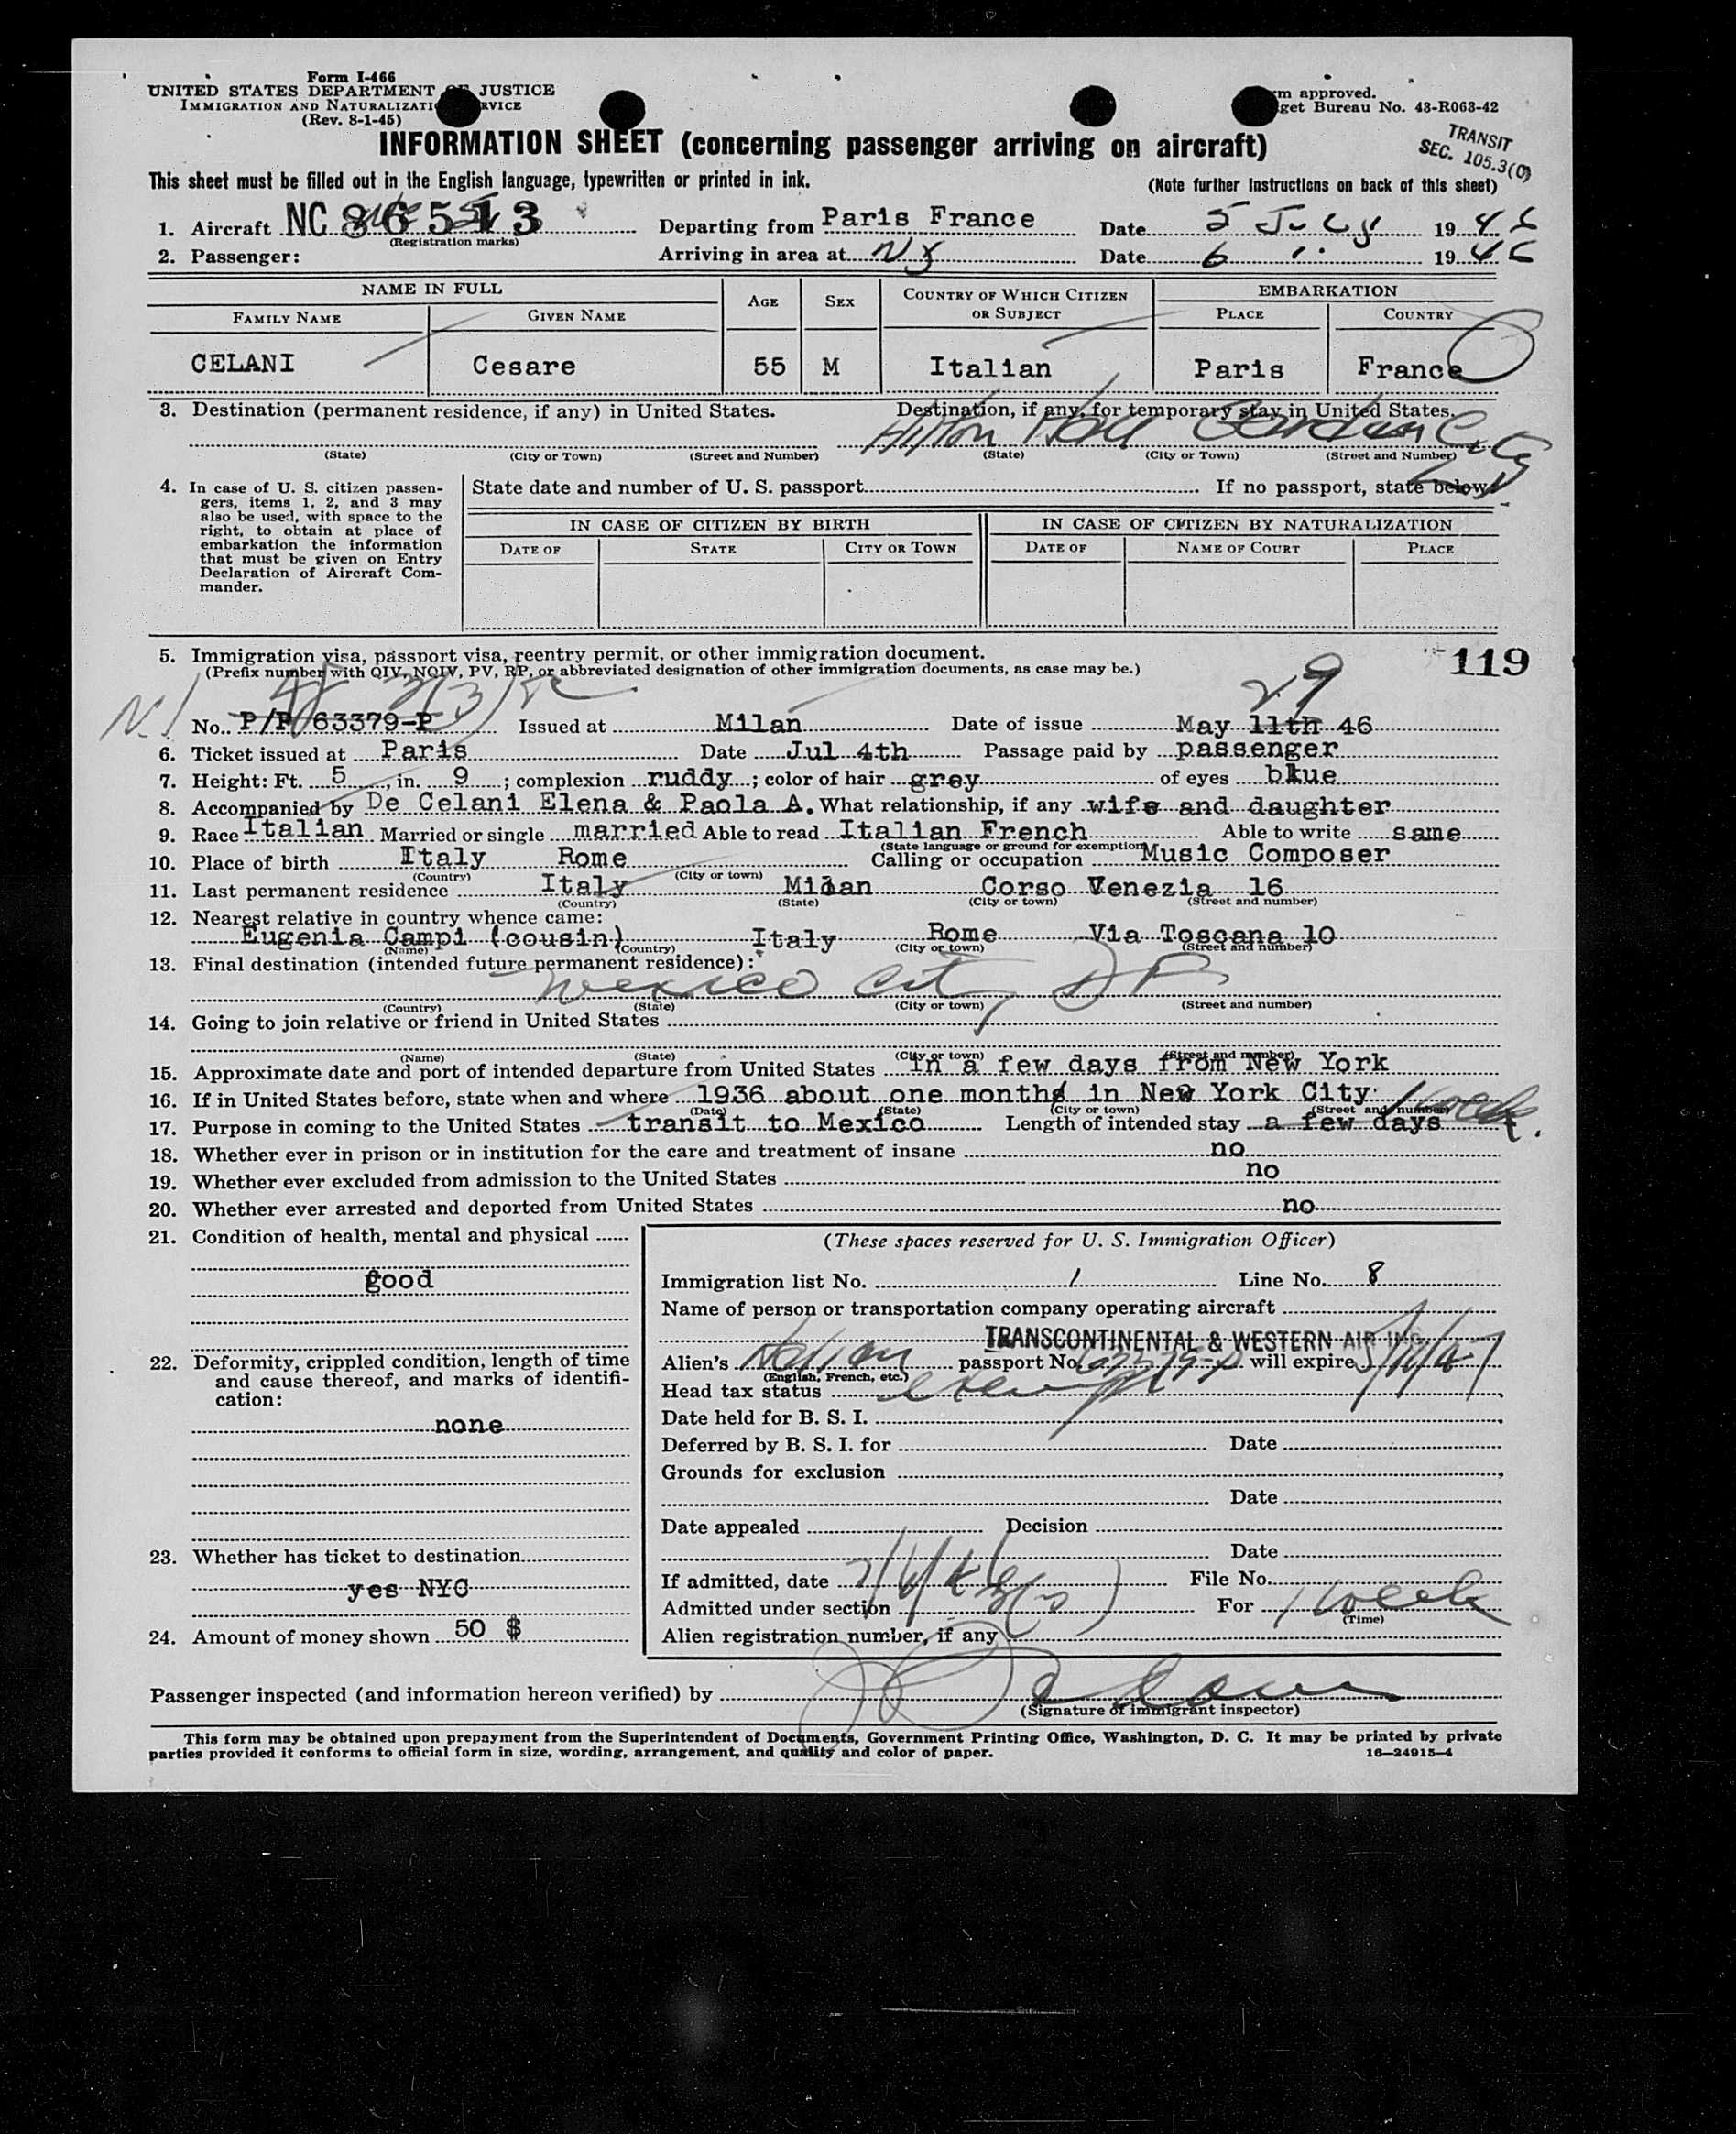 Form I-466
UNITED STATES DEPARTMENT OF JUSTICE
IMMIGRATION AND NATURALIZATI RVICE
(Rev. 8-1-45)
m approved.
get Bureau No. 43-R063-42
TRANSIT
SEC. 105.3(C)
INFORMATION SHEET (concerning passenger arriving on aircraft)
This sheet must be filled out in the English language, typewritten or printed in ink.
(Note further instructions on back of this sheet)
1. Aircraft NC 86513 Departing from Paris France Date 5 July 1946
(Registration marks)
2. Passenger: Arriving in area at NY Date 6 " 1946
NAME IN FULL AGE SEX COUNTRY OF WHICH CITIZEN OR SUBJECT EMBARKATION
FAMILY NAME GIVEN NAME PLACE COUNTRY
CELANI Cesare 55 M Italian Paris France
3. Destination (permanent residence, if any) in United States. Destination, if any, for temporary stay in United States.
Garden City
(State) (City or Town) (Street and Number) (State) (City or Town) (Street and Number)
4. In case of U. S. citizen passen-
gers, items 1, 2, and 3 may
also be used, with space to the
right, to obtain at place of
embarkation the information
that must be given on Entry
Declaration of Aircraft Com-
mander.
State date and number of U. S. passport If no passport, state below:
IN CASE OF CITIZEN BY BIRTH IN CASE OF CITIZEN BY NATURALIZATION
DATE OF STATE CITY OR TOWN DATE OF NAME OF COURT PLACE
119
5. Immigration visa, passport visa, reentry permit, or other immigration document.
(Prefix number with QIV, NQIV, PV, RP, or abbreviated designation of other immigration documents, as case may be.)
29
No. P/P 63379-P Issued at Milan Date of issue May 11th 46
6. Ticket issued at Paris Date Jul 4th Passage paid by passenger
7. Height: Ft. 5, in. 9; complexion ruddy; color of hair grey of eyes bkue
8. Accompanied by De Celani Elena & Paola A. What relationship, if any wife and daughter
9. Race Italian Married or single married Able to read Italian French Able to write same
(State language or ground for exemption)
10. Place of birth Italy Rome Calling or occupation Music Composer
(Country) (City or town)
11. Last permanent residence Italy Milan Corso Venezia 16
(Country) (State) (City or town) (Street and number)
12. Nearest relative in country whence came:
Eugenia Campi (cousin) Italy Rome Via Toscana 10
(Name) (Country) (City or town) (Street and number)
13. Final destination (intended future permanent residence):
Mexico City DF
(Country) (State) (City or town) (Street and number)
14. Going to join relative or friend in United States
(Name) (State) (City or town) (Street and number)
15. Approximate date and port of intended departure from United States in a few days from New York
16. If in United States before, state when and where 1936 about one months in New York City
(Date) (State) (City or town) (Street and number)
1 week.
17. Purpose in coming to the United States transit to Mexico Length of intended stay a few days
18. Whether ever in prison or in institution for the care and treatment of insane no
19. Whether ever excluded from admission to the United States no
20. Whether ever arrested and deported from United States no
21. Condition of health, mental and physical
good
22. Deformity, crippled condition, length of time
and cause thereof, and marks of identifi-
cation:
none
23. Whether has ticket to destination
yes NYC
24. Amount of money shown 50 $
(These spaces reserved for U. S. Immigration Officer)
Immigration list No. 1 Line No. 8
Name of person or transportation company operating aircraft
TRANSCONTINENTAL & WESTERN AIR INC.
Alien's Italian passport No. 63379-P will expire 5/11/47
(English, French, etc.)
Head tax status exempt
Date held for B. S. I.
Deferred by B. S. I. for Date
Grounds for exclusion
Date
Date appealed Decision
Date
If admitted, date 7/6/46 File No.
Admitted under section 3(3) For 1 week
(Time)
Alien registration number, if any
Passenger inspected (and information hereon verified) by
(Signature of immigrant inspector)
This form may be obtained upon prepayment from the Superintendent of Documents, Government Printing Office, Washington, D. C. It may be printed by private
parties provided it conforms to official form in size, wording, arrangement, and quality and color of paper. 16—24915-4